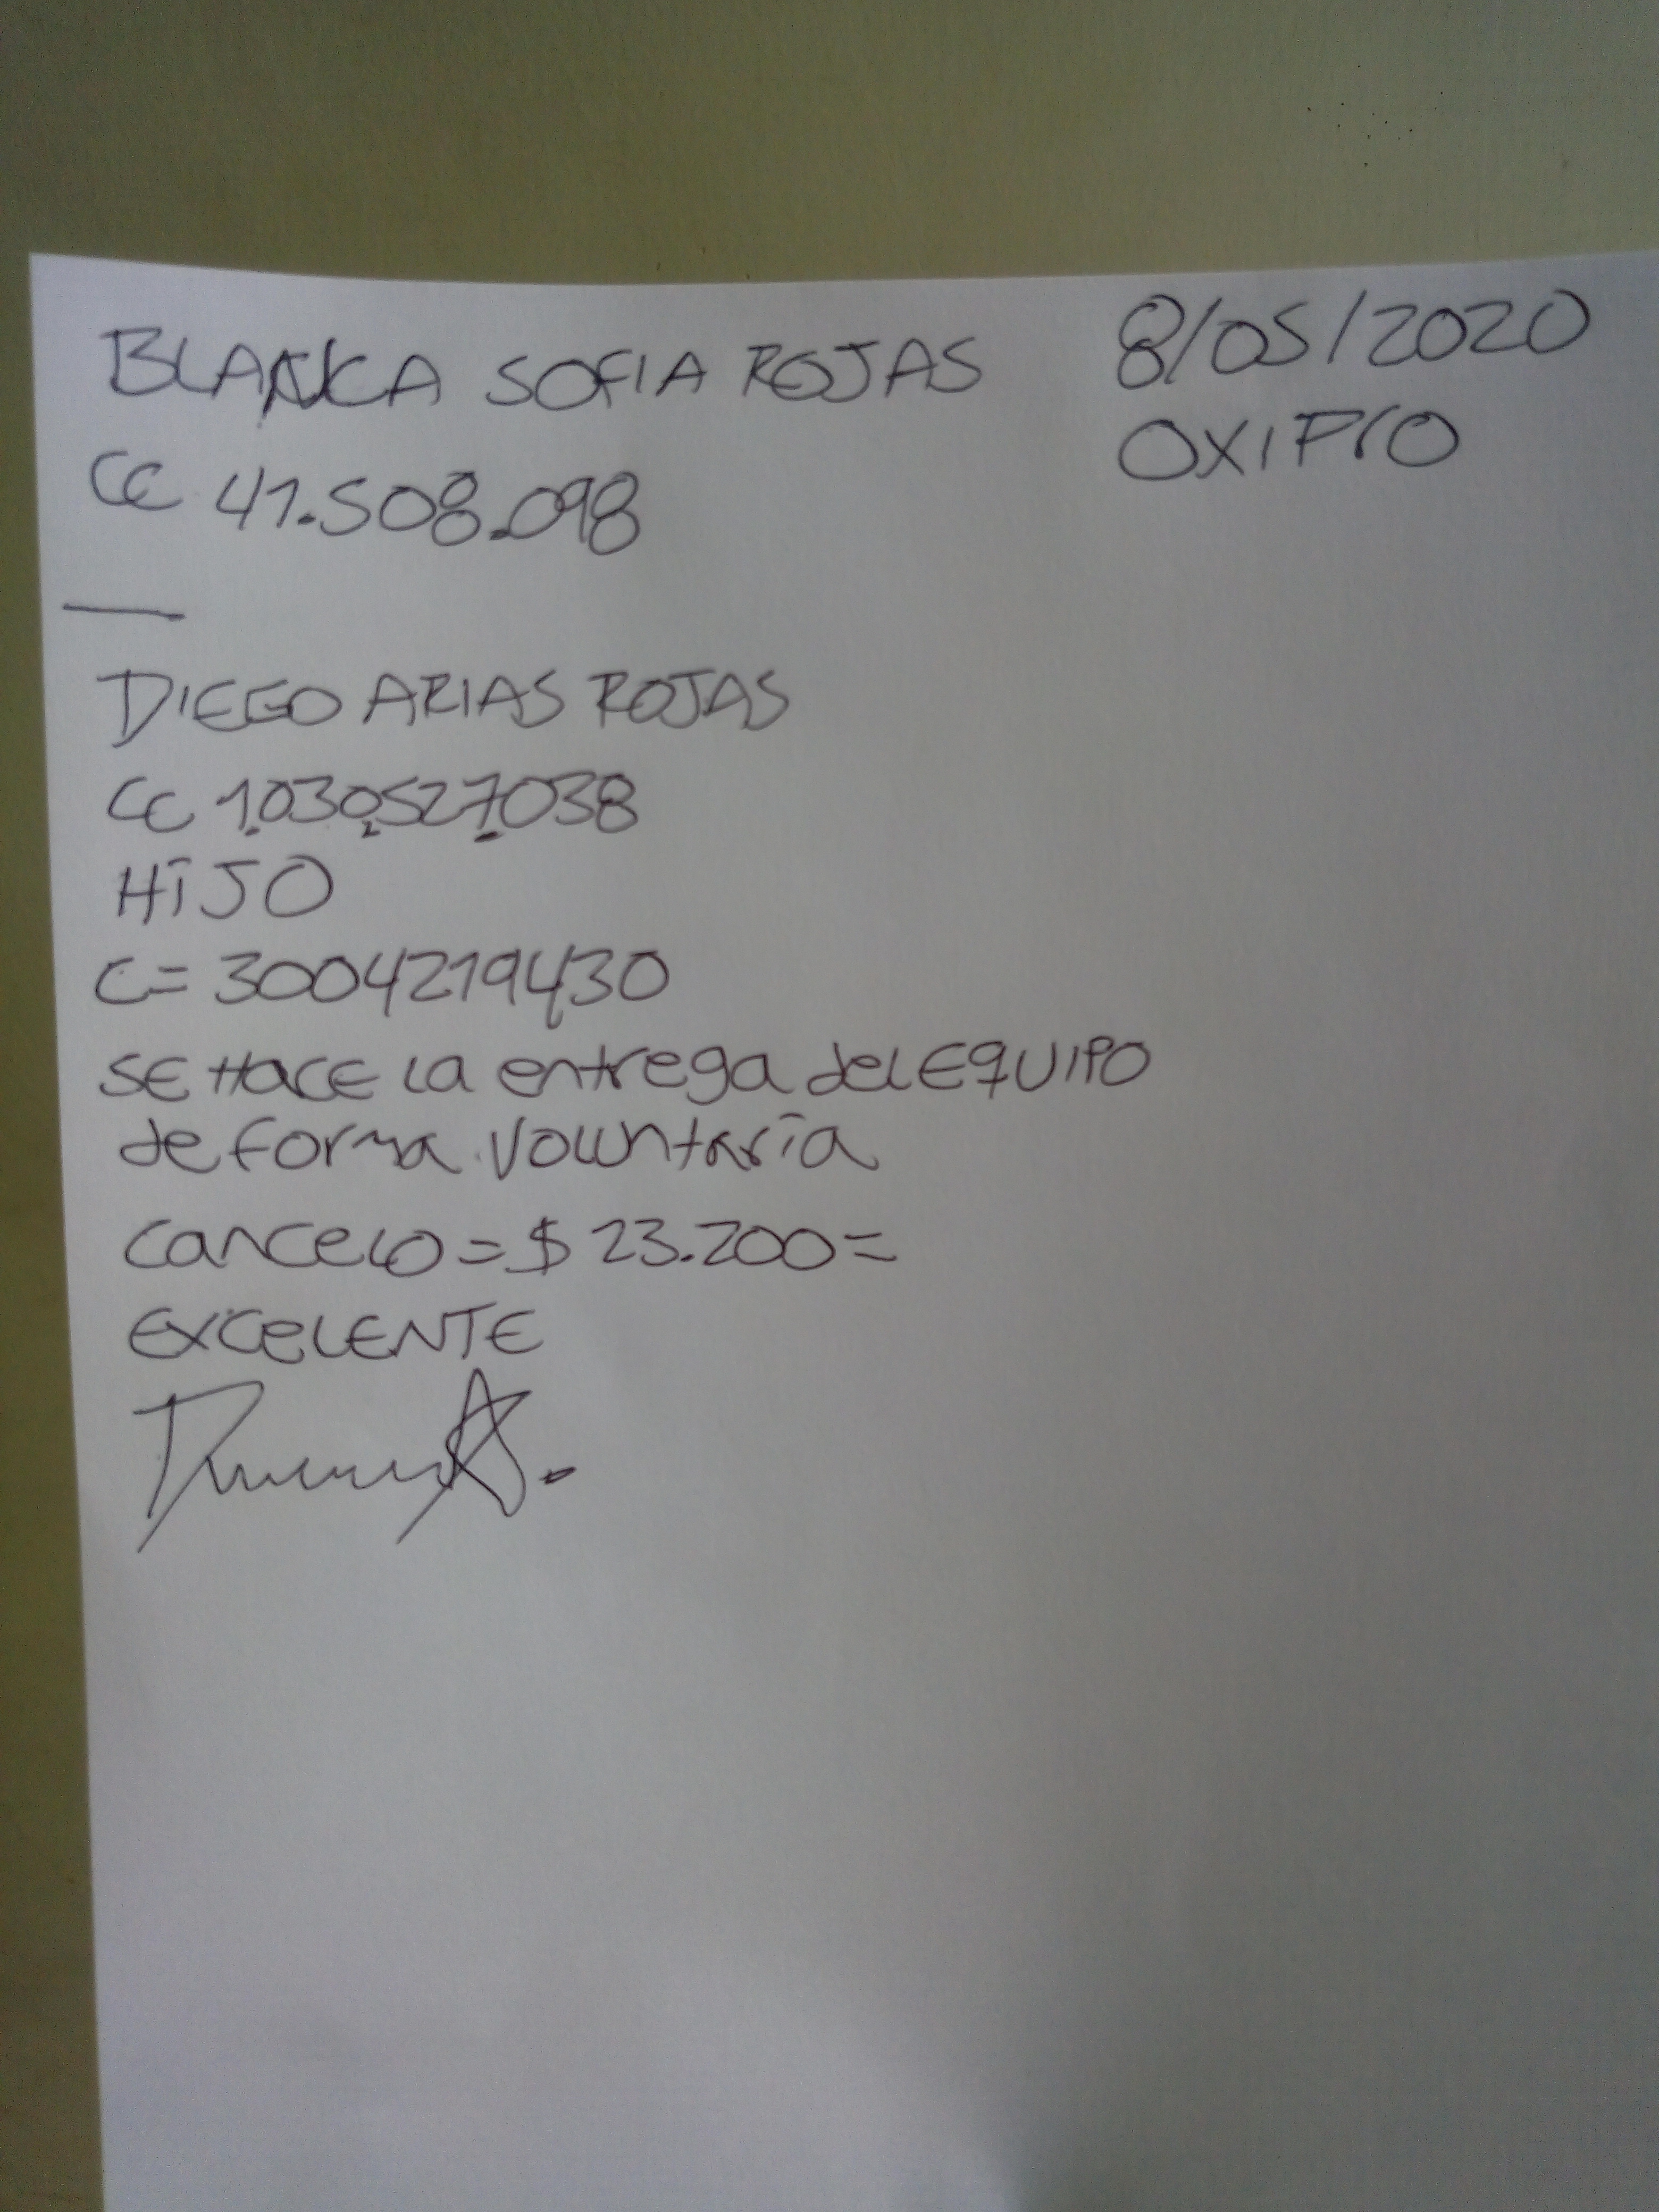 BLANCA SOFIA ROJAS
8/05/2020
OXIPrO
CC 41.508.098
DIEGO ARIAS ROJAS
CC 1.030.527.038
HIJO
C= 3004219430
SE HACE LA entrega del EQUIPO
de forma voluntaria
cancelo = $ 23.200=
EXCELENTE